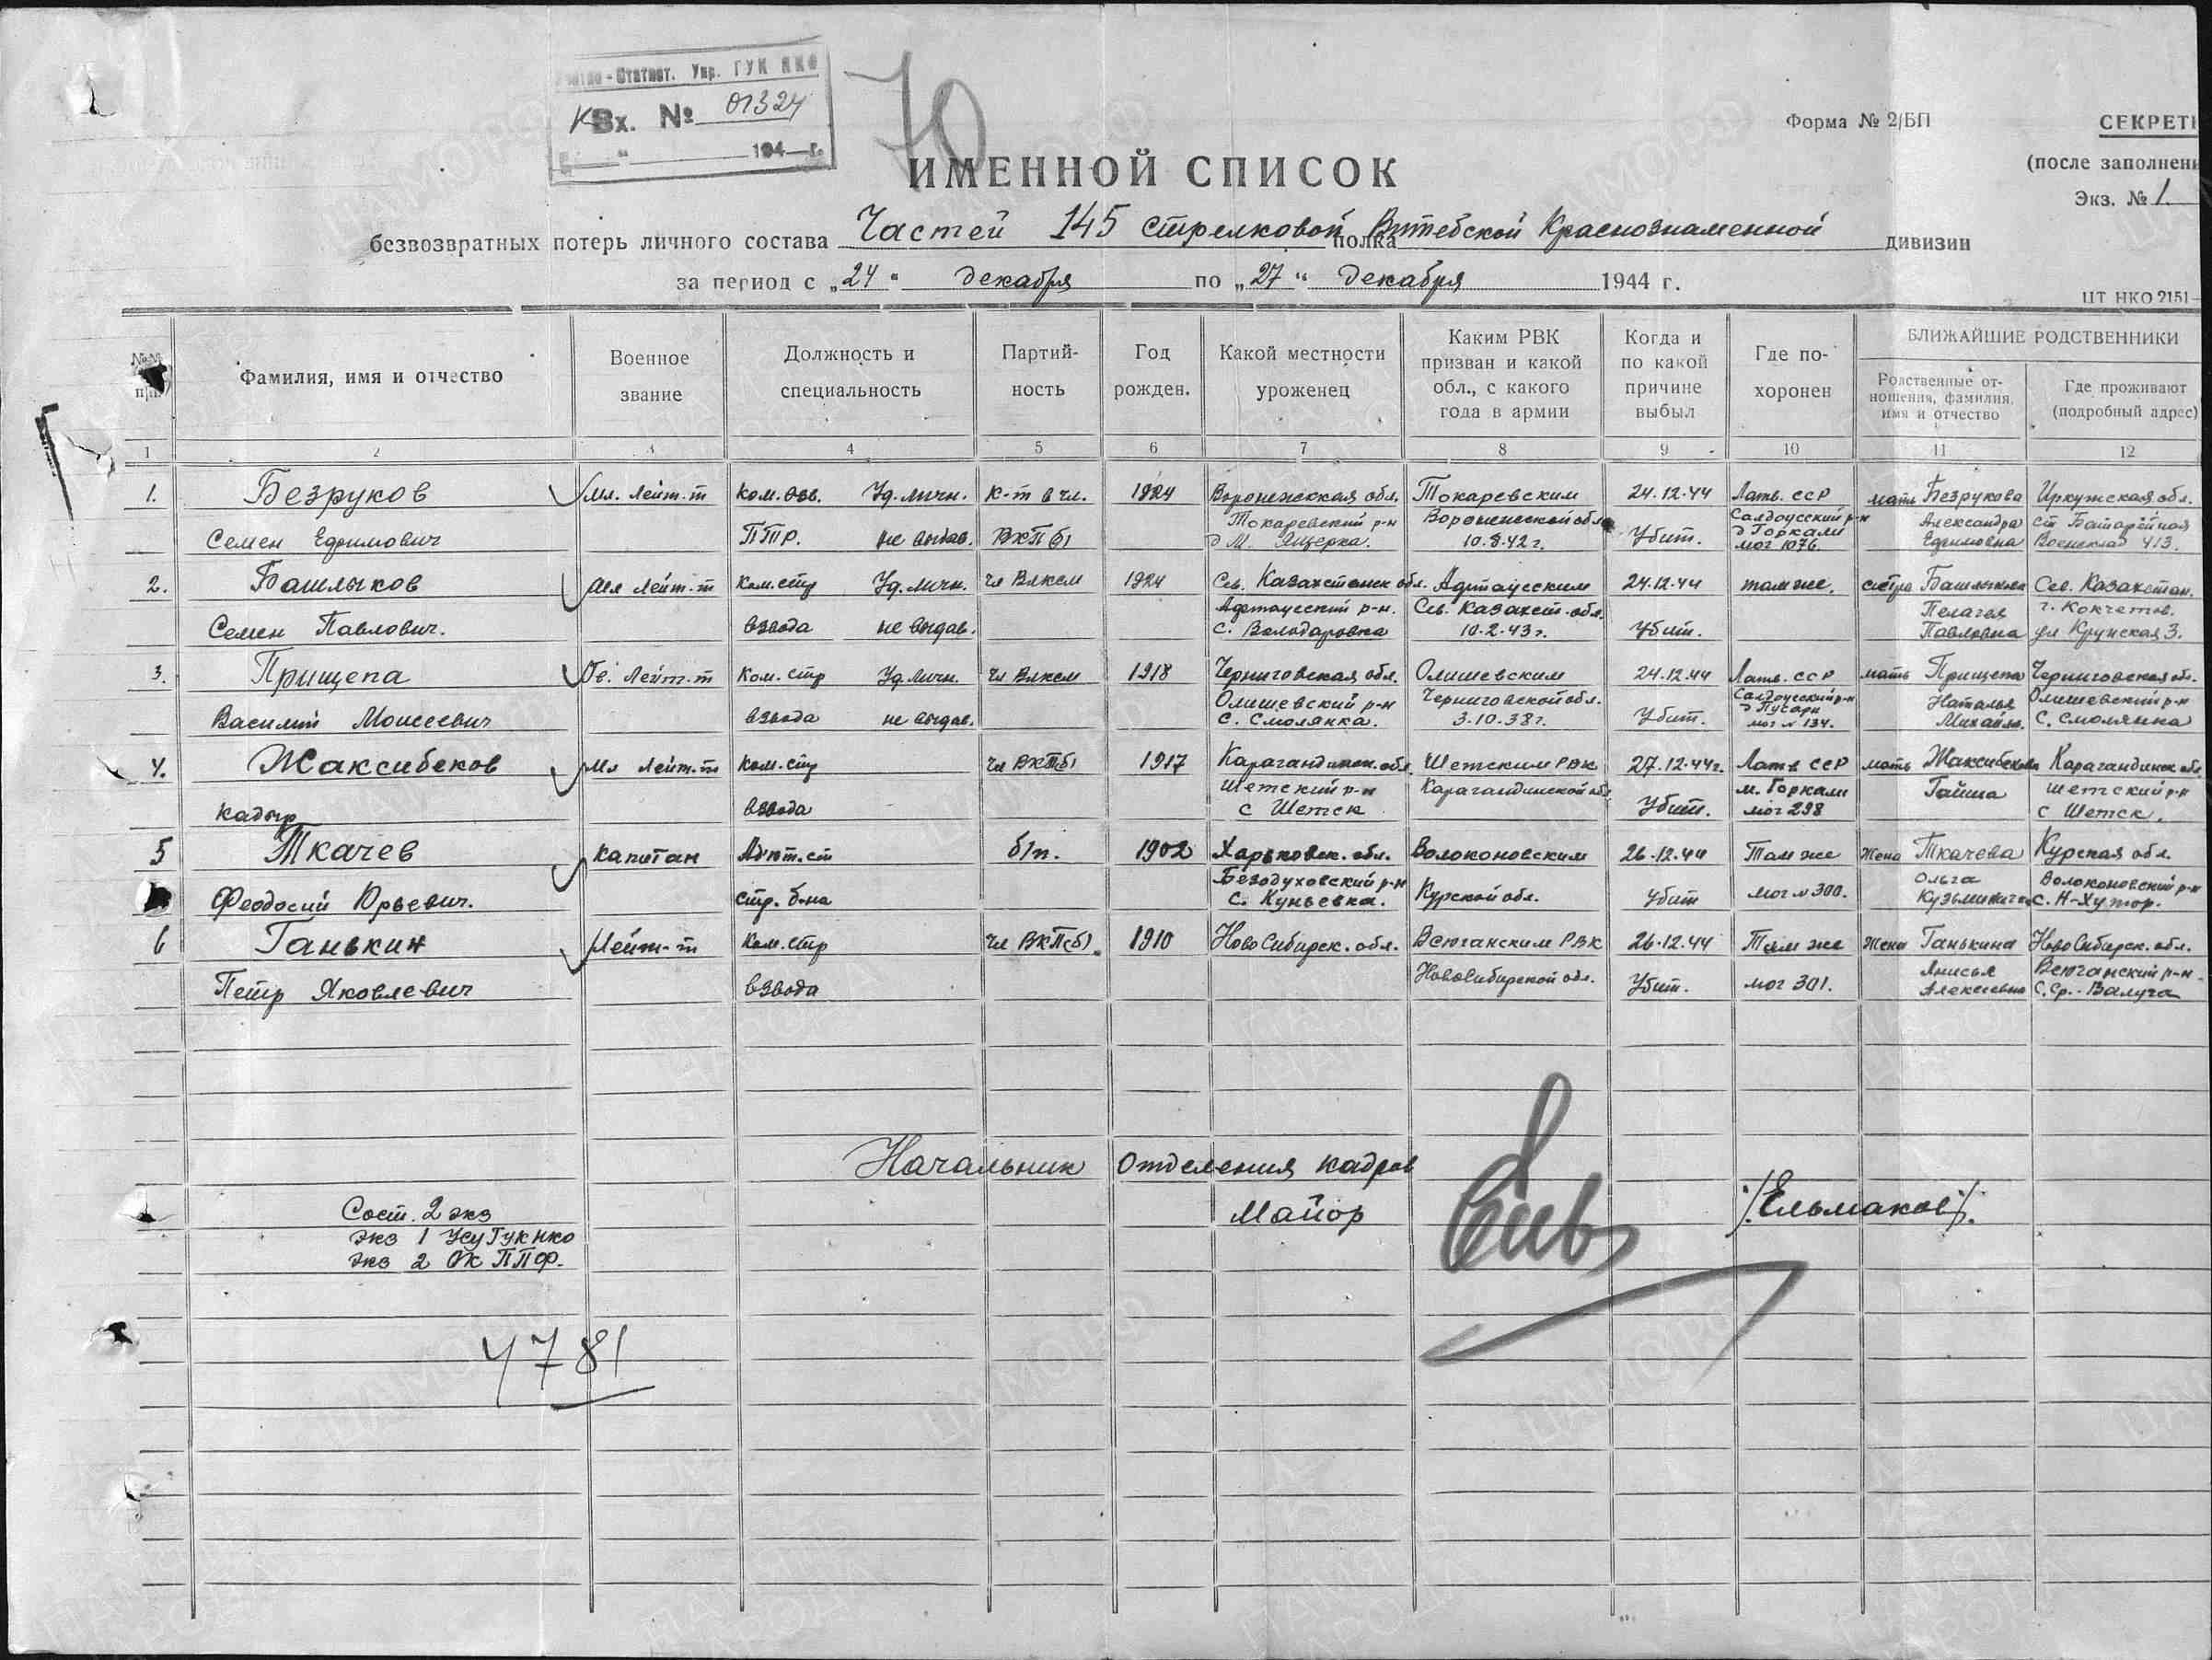 Статист. Упр. ГУК НКО
КВх. № 01324
194 г.
70
Форма № 2/БП
СЕКРЕТ
(после заполнени
Экз. № 1.
ИМЕННОЙ СПИСОК
безвозвратных потерь личного состава Частей 145 стрелковой полка Витебской Краснознаменной дивизии
за период с „24" декабря по „27" декабря 1944 г.
ЦТ НКО 2151—
№№ п/п
Фамилия, имя и отчество
Военное звание
Должность и специальность
Партий-ность
Год рожден.
Какой местности уроженец
Каким РВК призван и какой обл., с какого года в армии
Когда и по какой причине выбыл
Где по-хоронен
БЛИЖАЙШИЕ РОДСТВЕННИКИ
Родственные от-ношения, фамилия, имя и отчество
Где проживают (подробный адрес)
1 2 3 4 5 6 7 8 9 10 11 12
1. Безруков Мл. Лейт-т Ком. отд. Уд. личн. К-т в чл. 1924 Воронежская обл. Токаревским 24.12.44 Латв. ССР мать Безрукова Иркутская обл.
Токаревский р-н Воронежской обл. Салдусский р-н Александра ст Батарейная
Семен Ефимович ПТР. не выдав. ВКП(б) д М. Ящерка. 10.8.42 г. Убит. д Горкали мог 1076. Ефимовна Военсклад 413.
2. Башлыков Мл Лейт-т Ком. стр Уд. личн. Чл Влксм 1924 Сев. Казахстанск обл. Артаусским 24.12.44 там же. сестра Башлыкова Сев. Казахстан.
Артаусский р-н. Сев. Казахст. обл. Пелагея г. Кокчетов.
Семен Павлович. взвода не выдав. с. Володаровка 10.2.43 г. Убит. Павловна ул Крупская 3.
3. Прищепа Лейт-т Ком. стр Уд. личн. Чл Влксм 1918 Черниговская обл. Олишевским 24.12.44 Латв. ССР мать Прищепа Черниговская обл.
Олишевский р-н Черниговской обл. Салдусский р-н Наталья Олишевский р-н
Василий Моисеевич взвода не выдав. с. Смолянка. 3.10.38 г. Убит. д Пусари мог № 134. Михайл. с. Смолянка
4. Жаксибеков Мл Лейт-т Ком. стр Чл ВКП(б) 1917 Карагандинск. обл. Шетским РВК 27.12.44 г. Латв ССР мать Жаксибекова Карагандинск обл
Шетский р-н Карагандинской обл. м. Горкали Гайша Шетский р-н
Кадыр взвода с Шетск Убит. мог 298 с Шетск.
5 Ткачев Капитан Адъют. ст б/п. 1902 Харьковск. обл. Волоконовским 26.12.44 Там же Жена Ткачева Курская обл.
Безодуховский р-н Ольга Волоконовский р-н
Феодосий Юрьевич. стр. б-на с. Куньевка. Курской обл. Убит мог № 300. с. Н-Хутор.
6 Ганькин Лейт-т Ком. стр Чл ВКП(б). 1910 НовоСибирск. обл. Всюганским РВК 26.12.44 Там же Жена Ганькина НовоСибирск. обл.
Анисья Всюганский р-н.
Петр Яковлевич взвода НовоСибирской обл. Убит. мог 301. Алексеевна С. Ср.-Валуга
Начальник отделения кадров
Майор /Ельмаков/.
Сост. 2 экз
экз 1 Усу Гук НКО
экз 2 ОК ППФ.
4781